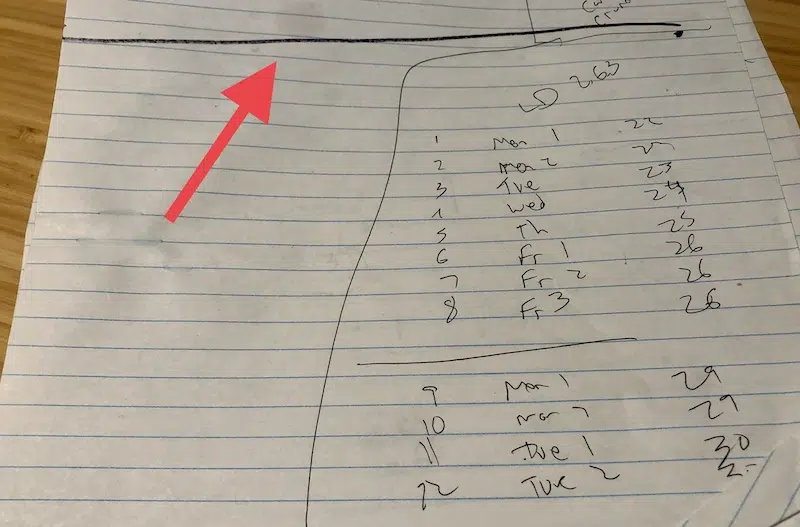 2.63
1 Mon 1 22
2 Mon 2
3 Tue 23
4 Wed 24
5 Th 25
6 Fr 1 26
7 Fr 2 26
8 Fr 3 26
9 Mon 1 29
10 Mon 2 29
11 Tue 1 30
12 Tue 2